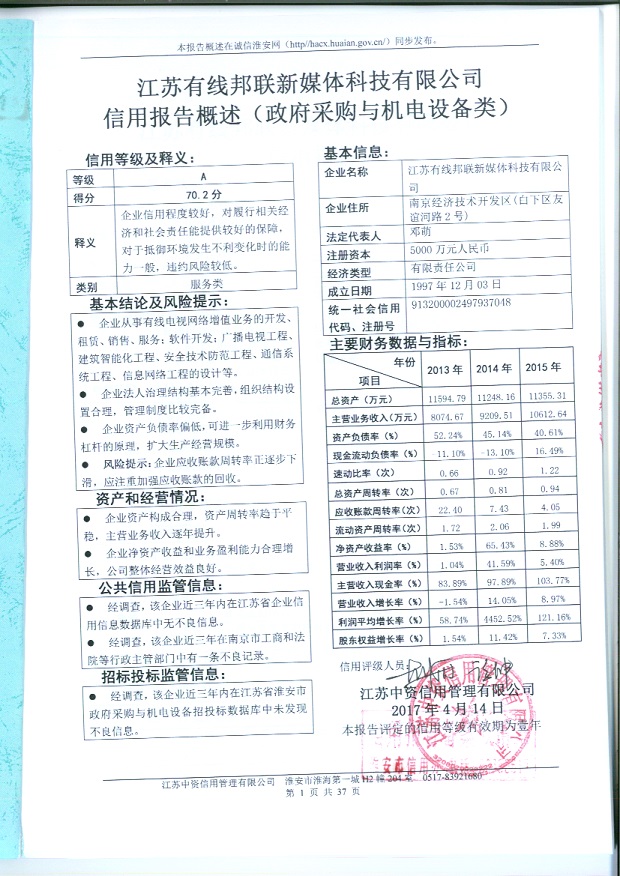 本报告概述在诚信淮安网（http//hacx.huaian.gov.cn/）同步发布。
江苏有线邦联新媒体科技有限公司
信用报告概述（政府采购与机电设备类）
信用等级及释义：
等级 A
得分 70.2分
释义 企业信用程度较好，对履行相关经
济和社会责任能提供较好的保障，
对于抵御环境发生不利变化时的能
力一般，违约风险较低。
类别 服务类
基本结论及风险提示：
● 企业从事有线电视网络增值业务的开发、
租赁、销售、服务；软件开发；广播电视工程、
建筑智能化工程、安全技术防范工程、通信系
统工程、信息网络工程的设计等。
● 企业法人治理结构基本完善，组织结构设
置合理，管理制度比较完备。
● 企业资产负债率偏低，可进一步利用财务
杠杆的原理，扩大生产经营规模。
● 风险提示：企业应收账款周转率正逐步下
滑，应注重加强应收账款的回收。
资产和经营情况：
● 企业资产构成合理，资产周转率趋于平
稳，主营业务收入逐年提升。
● 企业净资产收益和业务盈利能力合理增
长，公司整体经营效益良好。
公共信用监管信息：
● 经调查，该企业近三年内在江苏省企业信
用信息数据库中无不良信息。
● 经调查，该企业近三年在南京市工商和法
院等行政主管部门中有一条不良记录。
招标投标监管信息：
● 经调查，该企业近三年内在江苏省淮安市
政府采购与机电设备招投标数据库中未发现
不良信息。
基本信息：
企业名称 江苏有线邦联新媒体科技有限公
司
企业住所 南京经济技术开发区(白下区友
谊河路2号)
法定代表人 邓萌
注册资本 5000万元人民币
经济类型 有限责任公司
成立日期 1997年12月03日
统一社会信用 913200002497937048
代码、注册号
主要财务数据与指标：
年份 项目 2013年 2014年 2015年
总资产（万元） 11594.79 11248.16 11355.31
主营业务收入(万元) 8074.67 9209.51 10612.64
资产负债率（%） 52.24% 45.14% 40.61%
现金流动负债率（%） -11.10% -13.10% 16.49%
速动比率（次） 0.66 0.92 1.22
总资产周转率（次） 0.67 0.81 0.94
应收账款周转率(次) 22.40 7.43 4.05
流动资产周转率(次) 1.72 2.06 1.99
净资产收益率（%） 1.53% 65.43% 8.88%
营业收入利润率（%） 1.04% 41.59% 5.40%
主营收入现金率（%） 83.89% 97.89% 103.77%
营业收入增长率（%） -1.54% 14.05% 8.97%
利润平均增长率（%） 58.74% 4452.52% 121.16%
股东权益增长率（%） 1.54% 11.42% 7.33%
信用评级人员：
江苏中资信用管理有限公司
2017年4月14日
本报告评定的信用等级有效期为壹年
江苏中资信用管理有限公司 淮安市淮海第一城H2幢204室 0517-83921680
第 1 页 共 37 页